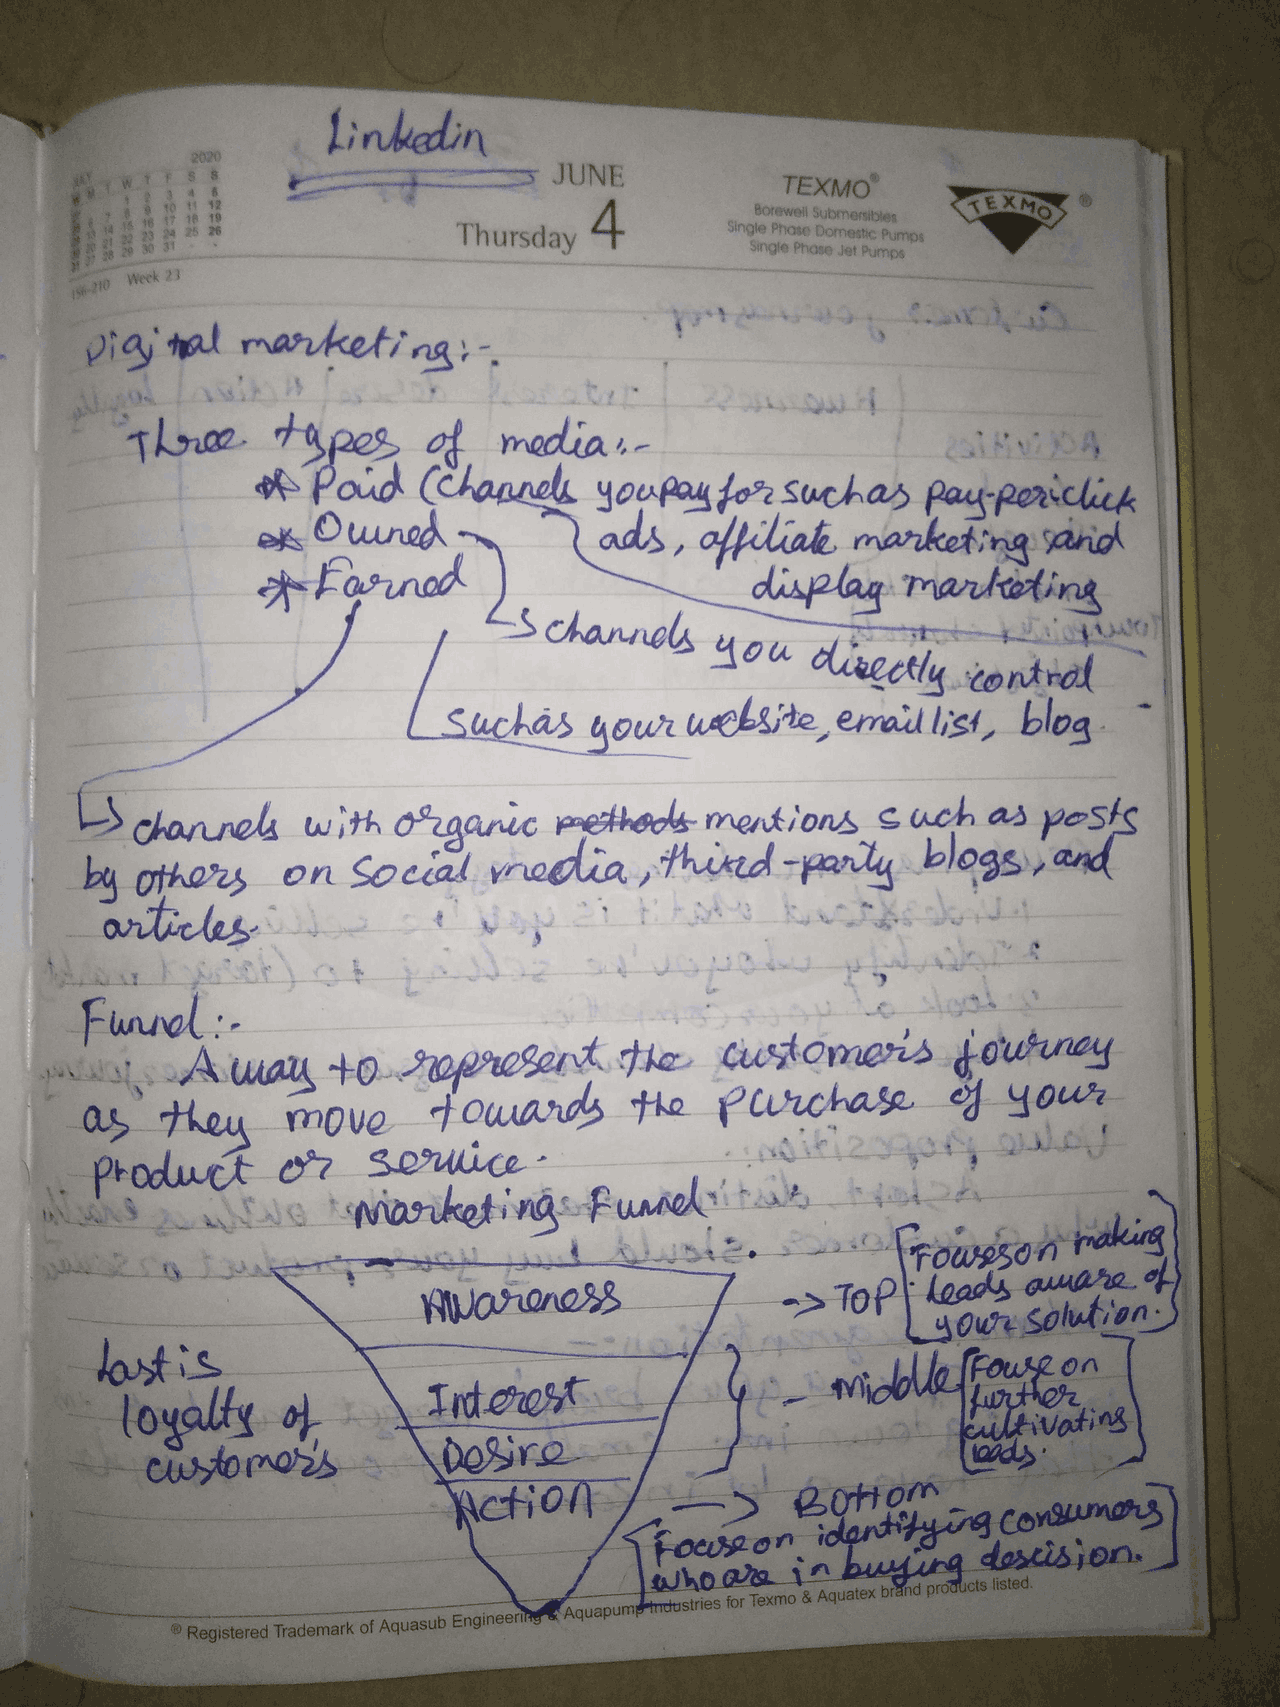 Linkedin
2020
JULY
M T W T F S S
JUNE
Thursday 4
156-210 Week 23
TEXMO®
Borewell Submersibles
Single Phase Domestic Pumps
Single Phase Jet Pumps
TEXMO ®
Digital marketing:-
Three types of media:-
* Paid (channels you pay for such as pay-per-click
ads, affiliate marketing and
display marketing
* Owned
* Earned
channels you directly control
such as your website, email list, blog.
channels with organic methods mentions such as posts
by others on social media, third-party blogs, and
articles.
Funnel:-
A way to represent the customer's journey
as they move towards the purchase of your
product or service.
Marketing Funnel
Awareness
-> TOP [Focuses on making
leads aware of
your solution.]
Interest
Desire
- Middle [Focuse on
further
cultivating
leads.]
Action
-> Bottom
[Focuse on identifying consumers
who are in buying descision.]
Last is
loyalty of
customer's
® Registered Trademark of Aquasub Engineering & Aquapump Industries for Texmo & Aquatex brand products listed.